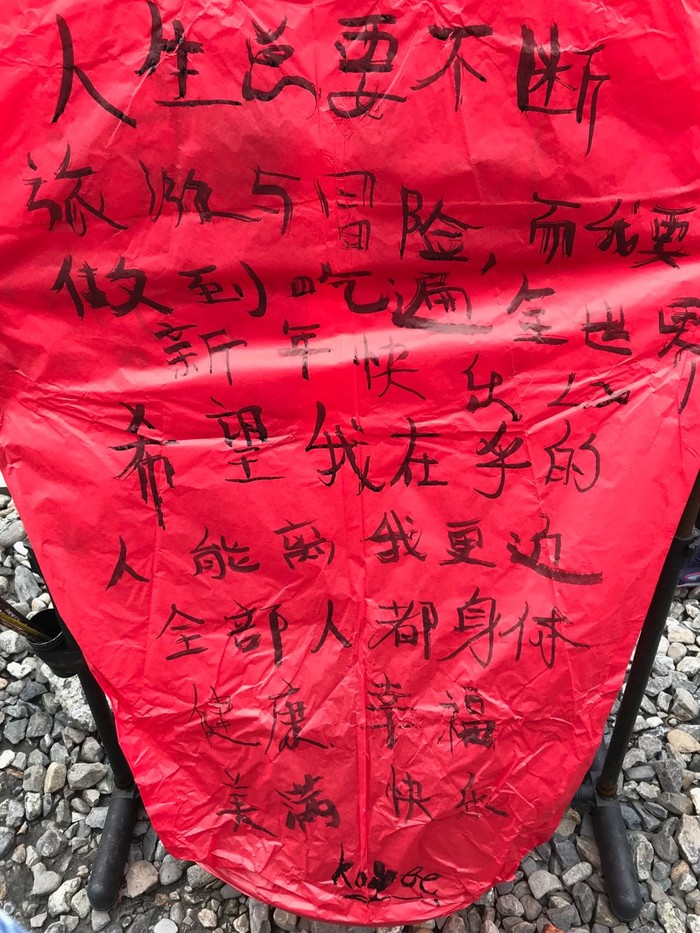 人生总要不断
旅游与冒险,而我要
做到吃遍全世界
新年快乐
希望我在乎的
人能离我更边
全部人都身体
健康幸福
美满快乐